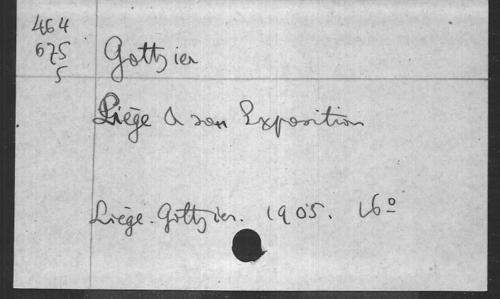 464
675
5
Gothier
Liège à son Exposition
Liège. Gothier. 1905. 16º